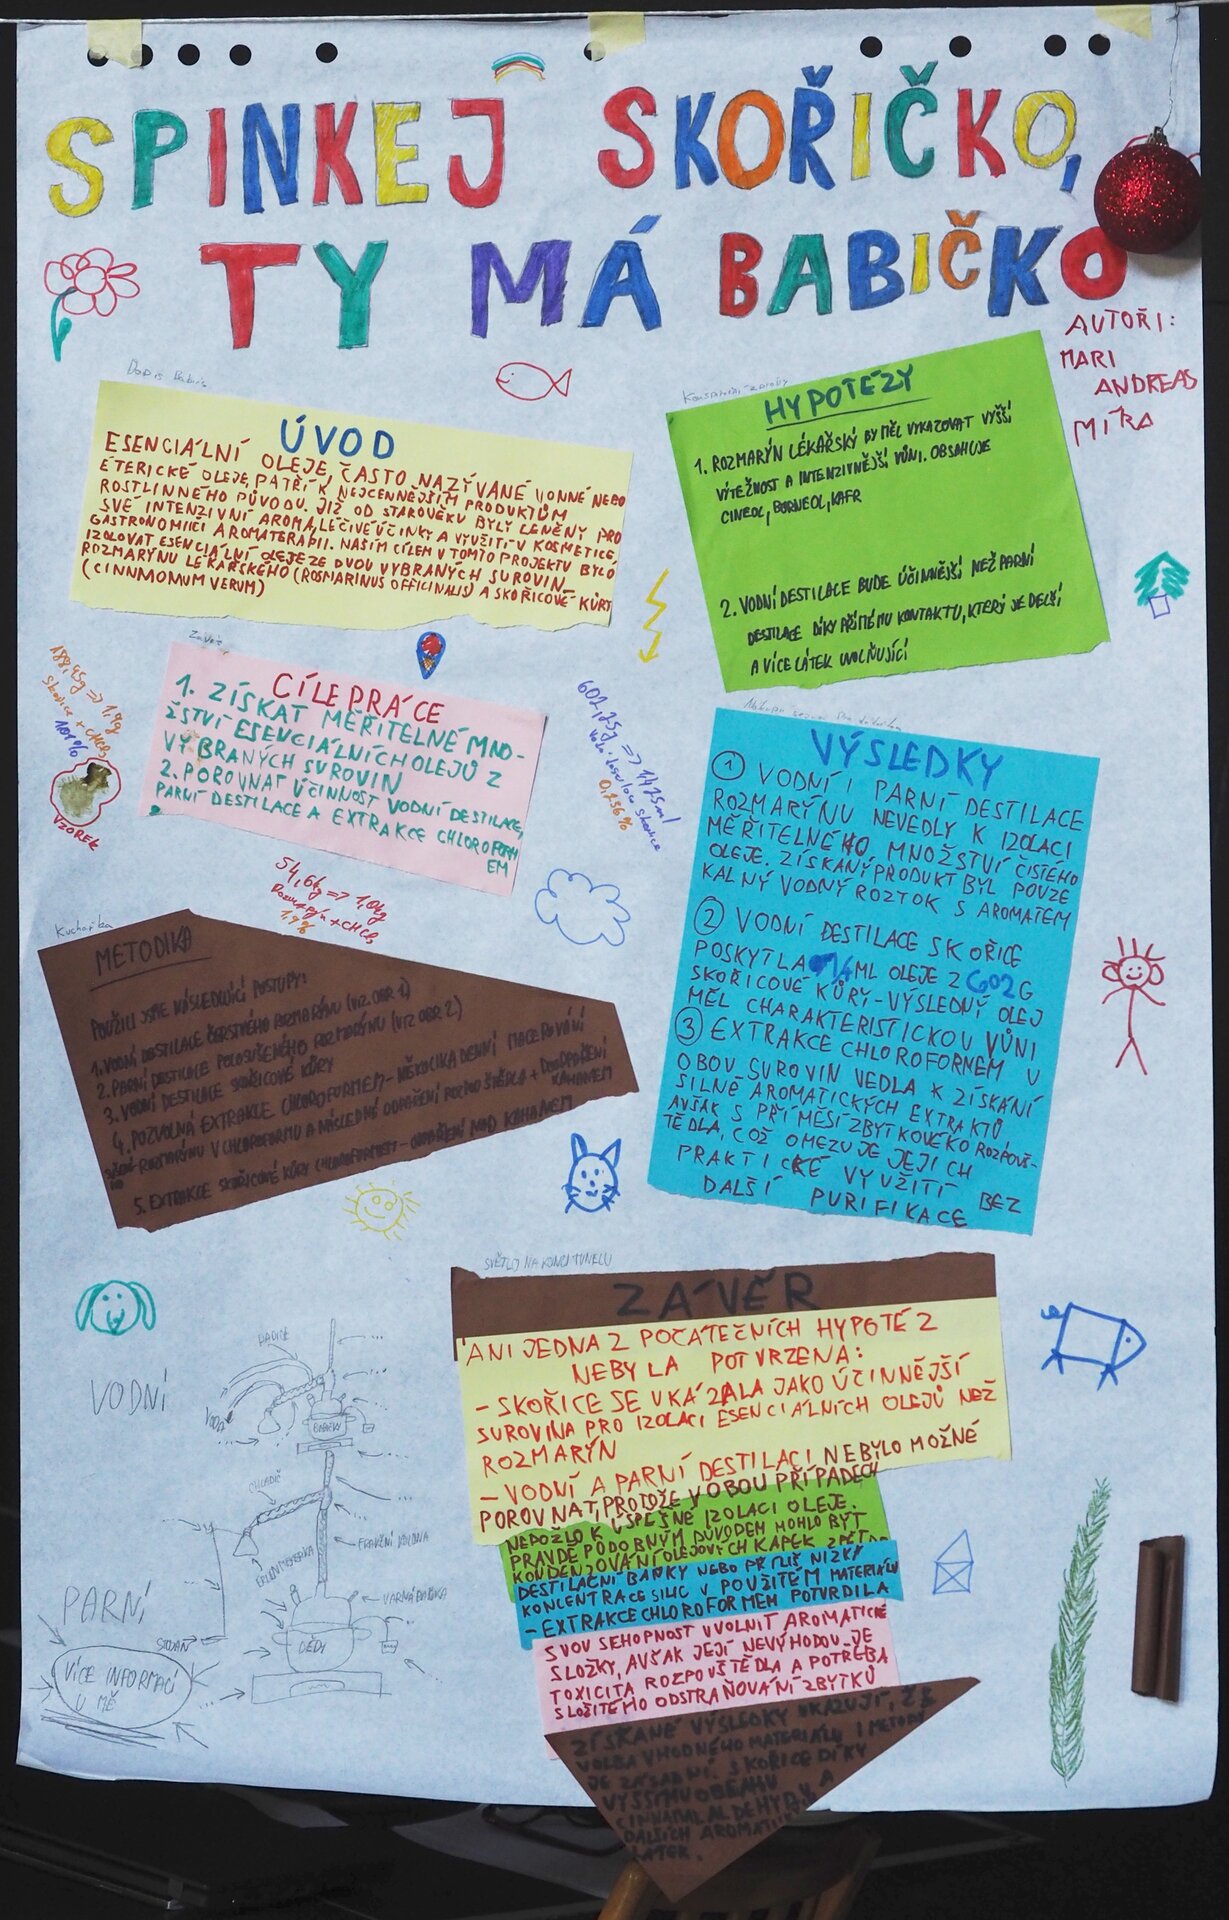 SPINKEJ SKOŘIČKO,
TY MÁ BABIČKO
AUTOŘI:
MARI
ANDREAS
MÍRA
ÚVOD
ESENCIÁLNÍ OLEJE, ČASTO NAZÝVANÉ VONNÉ NEBO
ÉTERICKÉ OLEJE, PATŘÍ K NEJCENNĚJŠÍM PRODUKTŮM
ROSTLINNÉHO PŮVODU. JIŽ OD STAROVĚKU BYLY CENĚNY PRO
SVÉ INTENZIVNÍ AROMA, LÉČIVÉ ÚČINKY A VYUŽITÍ V KOSMETICE,
GASTRONOMII ČI AROMATERAPII. NAŠÍM CÍLEM V TOMTO PROJEKTU BYLO
IZOLOVAT ESENCIÁLNÍ OLEJE ZE DVOU VYBRANÝCH SUROVIN –
ROZMARÝNU LÉKAŘSKÉHO (ROSMARINUS OFFICINALIS) A SKOŘICOVÉ KŮRY
(CINNMOMUM VERUM)
HYPOTÉZY
1. ROZMARÝN LÉKAŘSKÝ BY MĚL VYKAZOVAT VYŠŠÍ
VÝTĚŽNOST A INTENZIVNĚJŠÍ VŮNI. OBSAHUJE
CINEOL, BORNEOL, KAFR
2. VODNÍ DESTILACE BUDE ÚČINNĚJŠÍ NEŽ PARNÍ
DESTILACE DÍKY PŘÍMÉMU KONTAKTU, KTERÝ JE DELŠÍ
A VÍCE LÁTEK UVOLŇUJÍCÍ
CÍLE PRÁCE
1. ZÍSKAT MĚŘITELNÉ MNO-
ŽSTVÍ ESENCIÁLNÍCH OLEJŮ Z
VYBRANÝCH SUROVIN
2. POROVNAT ÚČINNOST VODNÍ DESTILACE,
PARNÍ DESTILACE A EXTRAKCE CHLOROFORM
EM
188,45g => 1,9g
skořice + CHCl3
1,01%
VZOREK
602,25g => 1,425ml
0,236%
54,6g => 1,0g
Rozmarýn + CHCl3
1,9%
VÝSLEDKY
① VODNÍ I PARNÍ DESTILACE
ROZMARÝNU NEVEDLY K IZOLACI
MĚŘITELNÉHO MNOŽSTVÍ ČISTÉHO
OLEJE. ZÍSKANÝ PRODUKT BYL POUZE
KALNÝ VODNÝ ROZTOK S AROMATEM
② VODNÍ DESTILACE SKOŘICE
POSKYTLA 1,4 ML OLEJE Z 602G
SKOŘICOVÉ KŮRY – VÝSLEDNÝ OLEJ
MĚL CHARAKTERISTICKOU VŮNI
③ EXTRAKCE CHLOROFORNEM U
OBOU SUROVIN VEDLA K ZÍSKÁNÍ
SILNĚ AROMATICKÝCH EXTRAKTŮ,
AVŠAK S PŘÍMĚSÍ ZBYTKOVÉHO ROZPOUŠ-
TĚDLA, COŽ OMEZUJE JEJICH
PRAKTICKÉ VYUŽITÍ BEZ
DALŠÍ PURIFIKACE
Kuchařka
METODIKA
POUŽILI JSME NÁSLEDUJÍCÍ POSTUPY:
1. VODNÍ DESTILACE ČERSTVÉHO ROZMARÝNU (VIZ. OBR 1)
2. PARNÍ DESTILACE POLOSUŠENÉHO ROZMARÝNU (VIZ OBR 2)
3. VODNÍ DESTILACE SKOŘICOVÉ KŮRY
4. POZVOLNÁ EXTRAKCE CHLOROFORMEM – NĚKOLIKA DENNÍ MACEROVÁNÍ
ROZMARÝNU V CHLOROFORMU A NÁSLEDNÉ ODPAŘENÍ ROZPOUŠTĚDLA + DOODPAŘENÍ
KAHANEM
5. EXTRAKCE SKOŘICOVÉ KŮRY CHLOROFORMEM – ODPAŘENÍ NAD KAHANEM
SVĚTLO NA KONCI TUNELU
ZÁVĚR
ANI JEDNA Z POČÁTEČNÍCH HYPOTÉZ
NEBYLA POTVRZENA:
– SKOŘICE SE UKÁZALA JAKO ÚČINNĚJŠÍ
SUROVINA PRO IZOLACI ESENCIÁLNÍCH OLEJŮ NEŽ
ROZMARÝN
– VODNÍ A PARNÍ DESTILACI NEBYLO MOŽNÉ
POROVNAT, PROTOŽE V OBOU PŘÍPADECH
NEDOŠLO K ÚSPĚŠNÉ IZOLACI OLEJE.
PRAVDĚPODOBNÝM DŮVODEM MOHLO BÝT
KONDENZOVÁNÍ OLEJOVÝCH KAPEK ZPĚT DO
DESTILAČNÍ BAŇKY NEBO PŘÍLIŠ NÍZKÁ
KONCENTRACE SILIC V POUŽITÉM MATERIÁLU
– EXTRAKCE CHLOROFORMEM POTVRDILA
SVOU SCHOPNOST UVOLNIT AROMATICKÉ
SLOŽKY, AVŠAK JEJÍ NEVÝHODOU JE
TOXICITA ROZPOUŠTĚDLA A POTŘEBA
SLOŽITÉHO ODSTRAŇOVÁNÍ ZBYTKŮ
ZÍSKANÉ VÝSLEDKY UKAZUJÍ, ŽE
VOLBA VHODNÉHO MATERIÁLU I METODY
JE ZÁSADNÍ. SKOŘICE DÍKY
VYŠŠÍMU OBSAHU
CINNAMALDEHYDU A
DALŠÍCH AROMATICKÝCH
LÁTEK.
VODNÍ
HADICE
VODA
BABIČKA
CHLADIČ
FRAKČNÍ KOLONA
ERLENMEYERKA
PARNÍ
STOJAN
VARNÁ BAŇKA
DĚDA
VÍCE INFORMACÍ
U MĚ